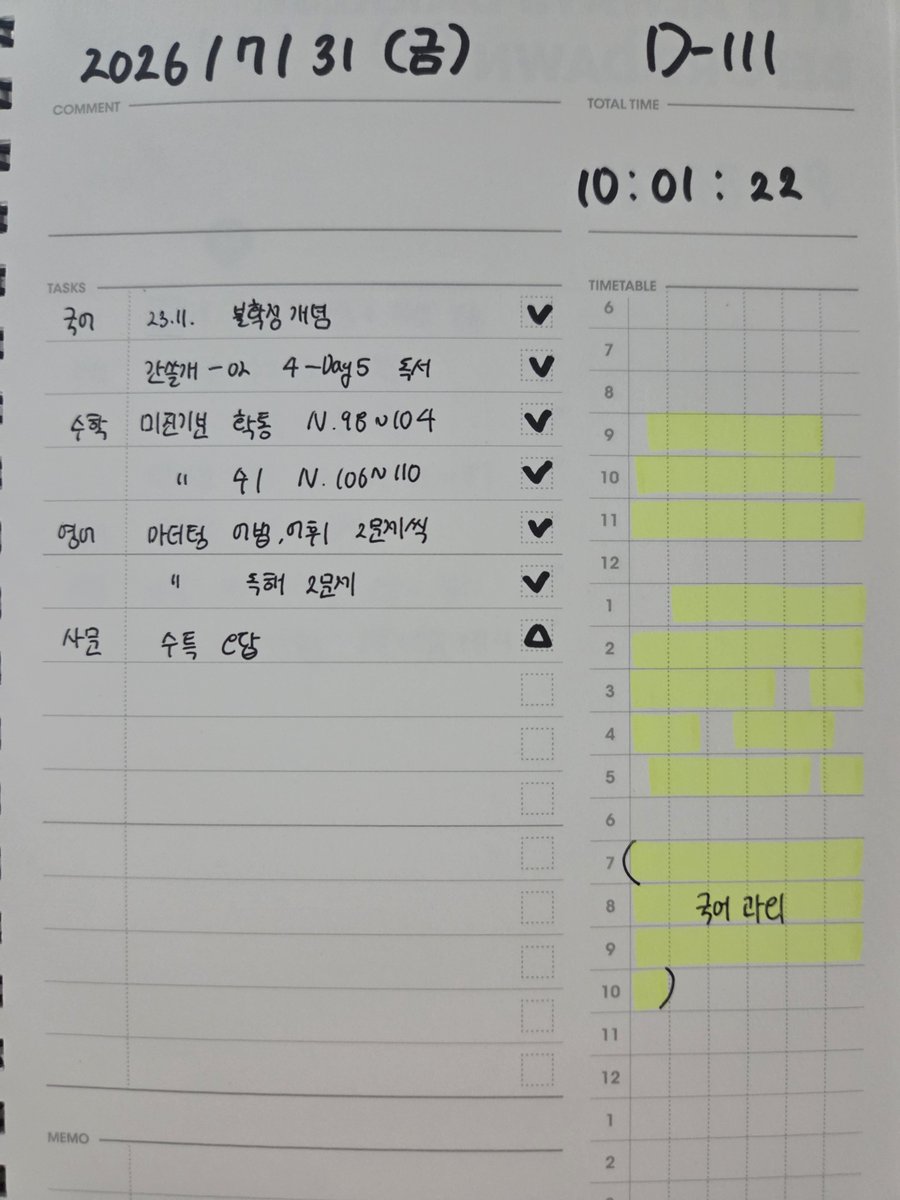 2026/7/31 (금)
D-111
COMMENT
TOTAL TIME
10:01:22
TASKS
국어 23.11. 불확성 개념
간쓸개-02 4-Day5 독서
수학 미친기분 확통 N.98~104
" 수1 N.106~110
영어 마더텅 어법, 어휘 2문제씩
" 독해 2문제
사문 수특 오답
TIMETABLE
6
7
8
9
10
11
12
1
2
3
4
5
6
7
8 국어 과외
9
10
11
12
1
2
MEMO